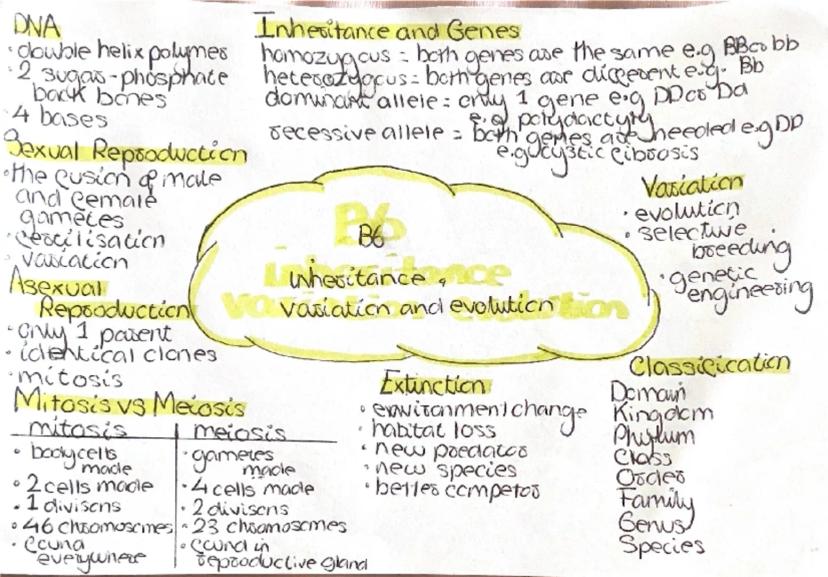 DNA
· double helix polymer
· 2 sugar-phosphate
back bones
· 4 bases
Sexual Reproduction
· the fusion of male
and female
gametes
· fertilisation
· variation
Asexual
Reproduction
· only 1 parent
· identical clones
· mitosis
Mitosis vs Meiosis
mitosis
· body cells
made
· 2 cells made
· 1 divisons
· 46 chromosomes
· found
everywhere
meiosis
· gametes
made
· 4 cells made
· 2 divisons
· 23 chromosomes
· found in
reproductive gland
Inheritance and Genes
homozygous = both genes are the same e.g BB or bb
heterozygous = both genes are different e.g. Bb
dominant allele = only 1 gene e.g DD or Dd
e.g polydactyty
recessive allele = both genes are needed e.g DD
e.g cystic fibrosis
B6
inheritance,
variation and evolution
Variation
· evolution
· selective
breeding
· genetic
engineering
Extinction
· environment change
· habitat loss
· new predator
· new species
· better competor
Classification
Domain
Kingdom
Phylum
Class
Order
Family
Genus
Species